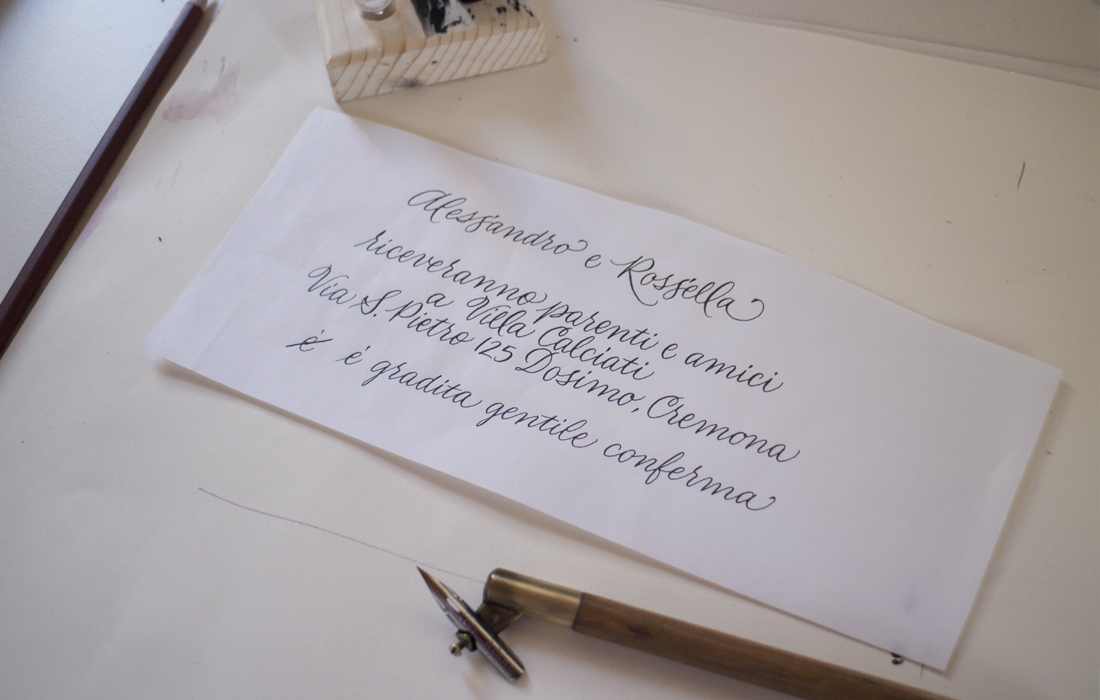 Alessandro e Rossella
riceveranno parenti e amici
a Villa Calciati
Via S. Pietro 125 Dosimo, Cremona
è é gradita gentile conferma